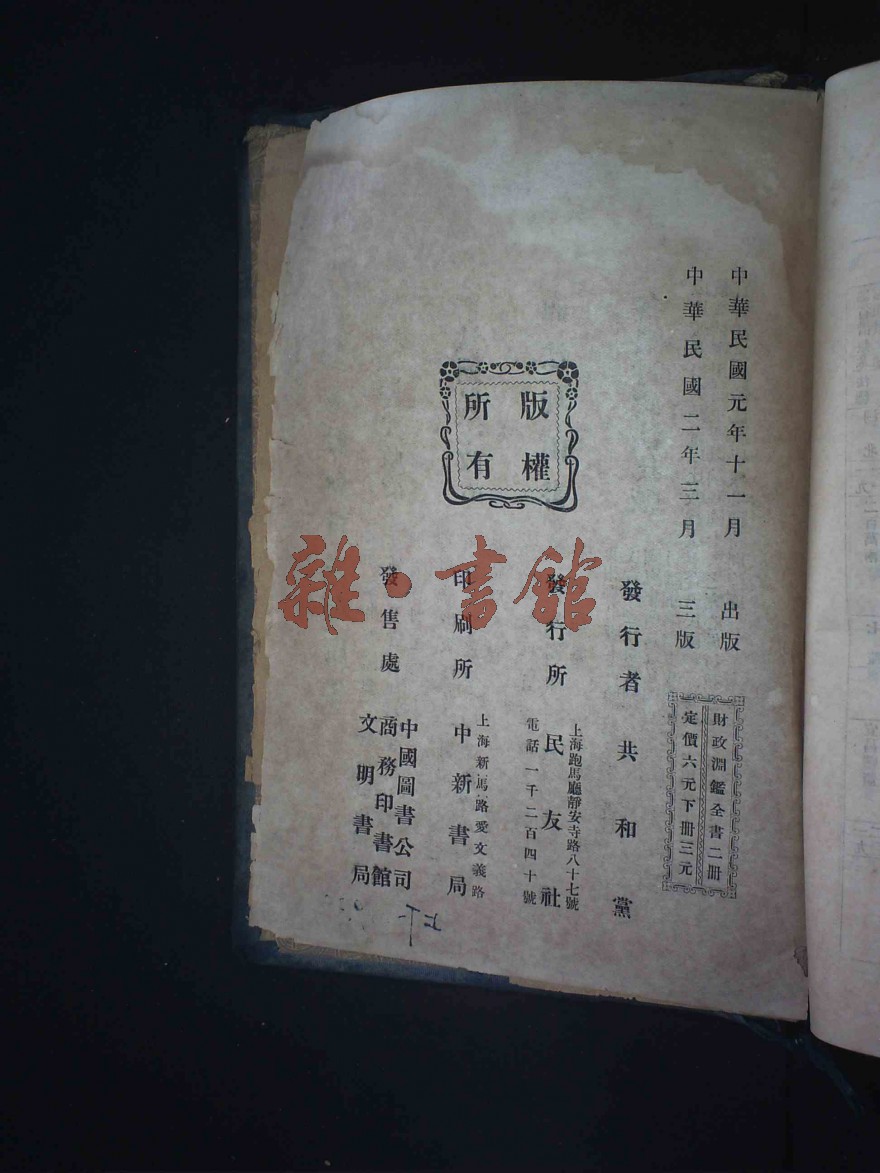 中華民國元年十一月 出版
中華民國二年三月 三版
財政淵鑑全書二冊
定價六元下冊三元
發行者 共和黨
發行所 民友社
上海跑馬廳靜安寺路八十七號
電話一千二百四十號
印刷所 中新書局
上海新馬路愛文義路
發售處
中國圖書公司
商務印書館
文明書局
版權所有
雜·書館